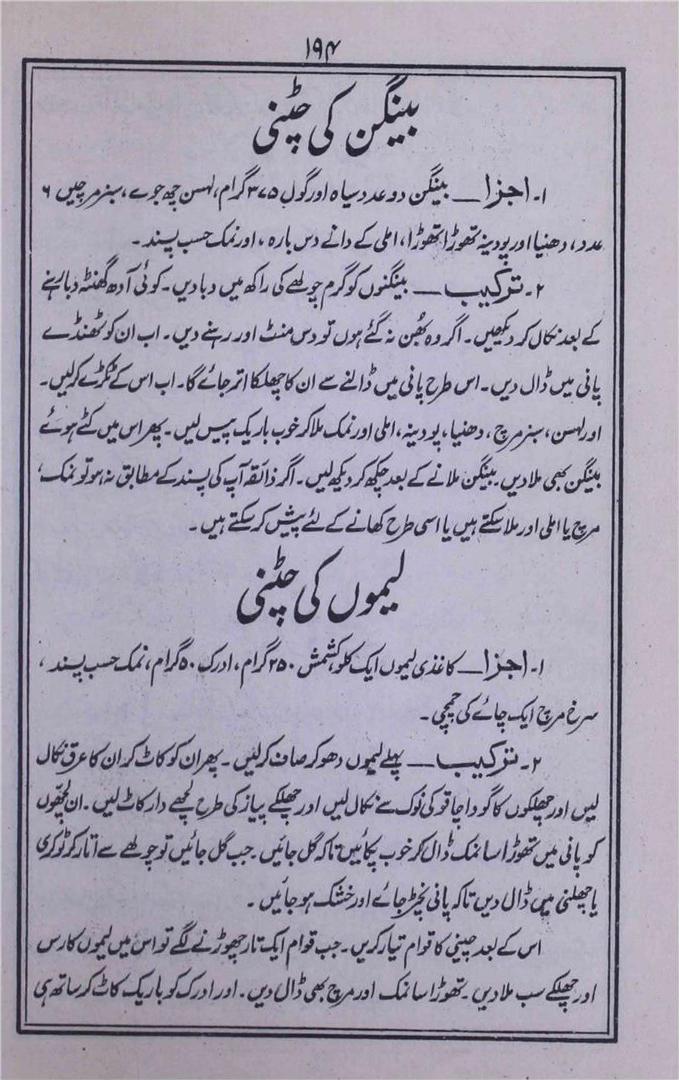 ۱۹۴
بینگن کی چٹنی
۱۔ اجزا ــــ بینگن دو عدد سیاہ اور گول ۳۷۵ گرام، لہسن چھ جوے، سبز مرچیں ۶
عدد، دھنیا اور پودینہ تھوڑا تھوڑا، املی کے دانے دس بارہ، اور نمک حسب پسند۔
۲۔ ترکیب ــــ بینگنوں کو گرم چولھے کی راکھ میں دبا دیں۔ کوئی آدھ گھنٹہ دبا رہنے
کے بعد نکال کر دیکھیں۔ اگر وہ بھن نہ گئے ہوں تو دس منٹ اور رہنے دیں۔ اب ان کو ٹھنڈے
پانی میں ڈال دیں۔ اس طرح پانی میں ڈالنے سے ان کا چھلکا اتر جائے گا۔ اب اس کے ٹکڑے کرلیں۔
اور لہسن، سبز مرچ، دھنیا، پودینہ، املی اور نمک ملا کر خوب باریک پیس لیں۔ پھر اس میں کٹے ہوئے
بینگن بھی ملا دیں۔ بینگن ملانے کے بعد چکھ کر دیکھ لیں۔ اگر ذائقہ آپ کی پسند کے مطابق نہ ہو تو نمک،
مرچ یا املی اور ملا سکتے ہیں یا اسی طرح کھانے کے لئے پیش کر سکتے ہیں۔
لیموں کی چٹنی
۱۔ اجزا ــــ کاغذی لیموں ایک کلو، کشمش ۲۵۰ گرام، ادرک ۵۰ گرام، نمک حسب پسند،
سرخ مرچ ایک چائے کی چمچی۔
۲۔ ترکیب ــــ پہلے لیموں دھو کر صاف کرلیں۔ پھر ان کو کاٹ کر ان کا عرق نکال
لیں اور چھلکوں کا گودا چاقو کی نوک سے نکال لیں اور چھلکے پیاز کی طرح لچھے دار کاٹ لیں۔ ان لچھوں
کو پانی میں تھوڑا سا نمک ڈال کر خوب پکائیں تاکہ گل جائیں۔ جب گل جائیں تو چولھے سے اتار کر ٹوکری
یا چھلنی میں ڈال دیں تاکہ پانی نچڑ جائے اور خشک ہو جائیں۔
اس کے بعد چینی کا قوام تیار کریں۔ جب قوام ایک تار چھوڑنے لگے تو اس میں لیموں کا رس
اور چھلکے سب ملا دیں۔ تھوڑا سا نمک اور مرچ بھی ڈال دیں۔ اور ادرک کو باریک کاٹ کر ساتھ ہی